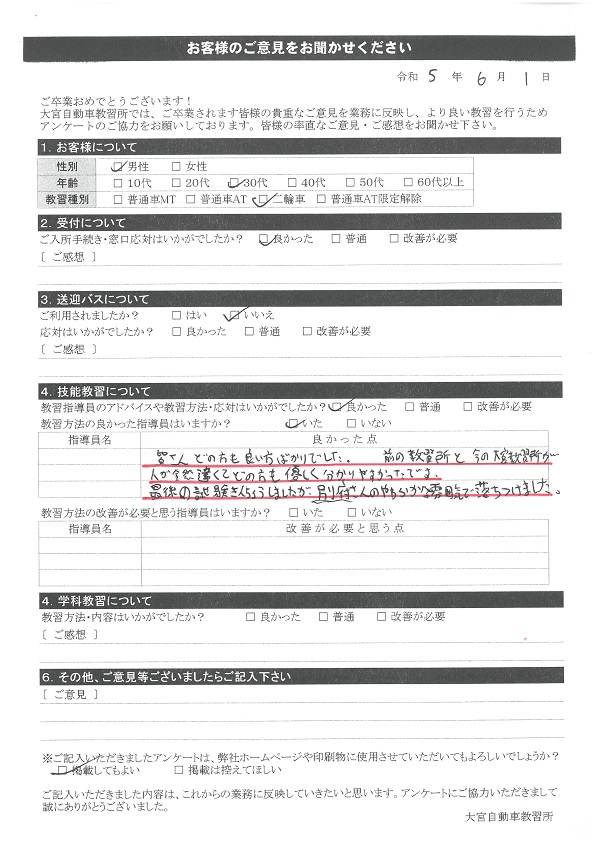 お客様のご意見をお聞かせください
令和 5 年 6 月 1 日
ご卒業おめでとうございます！
大宮自動車教習所では、ご卒業されます皆様の貴重なご意見を業務に反映し、より良い教習を行うため
アンケートのご協力をお願いしております。皆様の率直なご意見・ご感想をお聞かせ下さい。
1. お客様について
性別 ☑男性 □女性
年齢 □10代 □20代 ☑30代 □40代 □50代 □60代以上
教習種別 □普通車MT □普通車AT ☑二輪車 □普通車AT限定解除
2. 受付について
ご入所手続き・窓口応対はいかがでしたか？ ☑良かった □普通 □改善が必要
[ ご感想 ]
3. 送迎バスについて
ご利用されましたか？ □はい ☑いいえ
応対はいかがでしたか？ □良かった □普通 □改善が必要
[ ご感想 ]
4. 技能教習について
教習指導員のアドバイスや教習方法・応対はいかがでしたか？ ☑良かった □普通 □改善が必要
教習方法の良かった指導員はいますか？ ☑いた □いない
指導員名 良かった点
皆さん どの方も良い方ばかりでした。 前の教習所と今の大宮教習所が
人が全然違くてどの方も優しく分かりやすかったです。
最後の試験きんちょうしましたが別府さんのやわらいかな雰囲気で落ちつけました。
教習方法の改善が必要と思う指導員はいますか？ □いた □いない
指導員名 改善が必要と思う点
4. 学科教習について
教習方法・内容はいかがでしたか？ □良かった □普通 □改善が必要
[ ご感想 ]
6. その他、ご意見等ございましたらご記入下さい
[ ご意見 ]
※ご記入いただきましたアンケートは、弊社ホームページや印刷物に使用させていただいてもよろしいでしょうか？
☑掲載してもよい □掲載は控えてほしい
ご記入いただきました内容は、これからの業務に反映していきたいと思います。アンケートにご協力いただきまして
誠にありがとうございました。
大宮自動車教習所